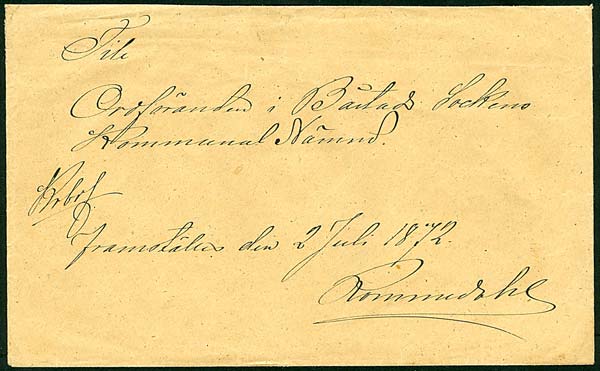 Till
Ordföranden i Båstads Sockens
Kommunal Nämnd.
Krbrf
framställes den 2 Juli 1872.
Rommedahl